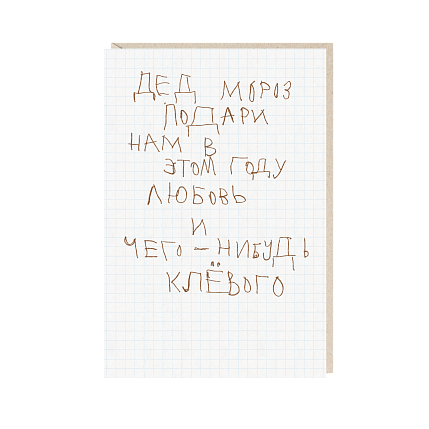 ДЕД МОРОЗ
ПОДАРИ
НАМ В
ЭТОМ ГОДУ
ЛЮБОВЬ
И
ЧЕГО-НИБУДЬ
КЛЁВОГО